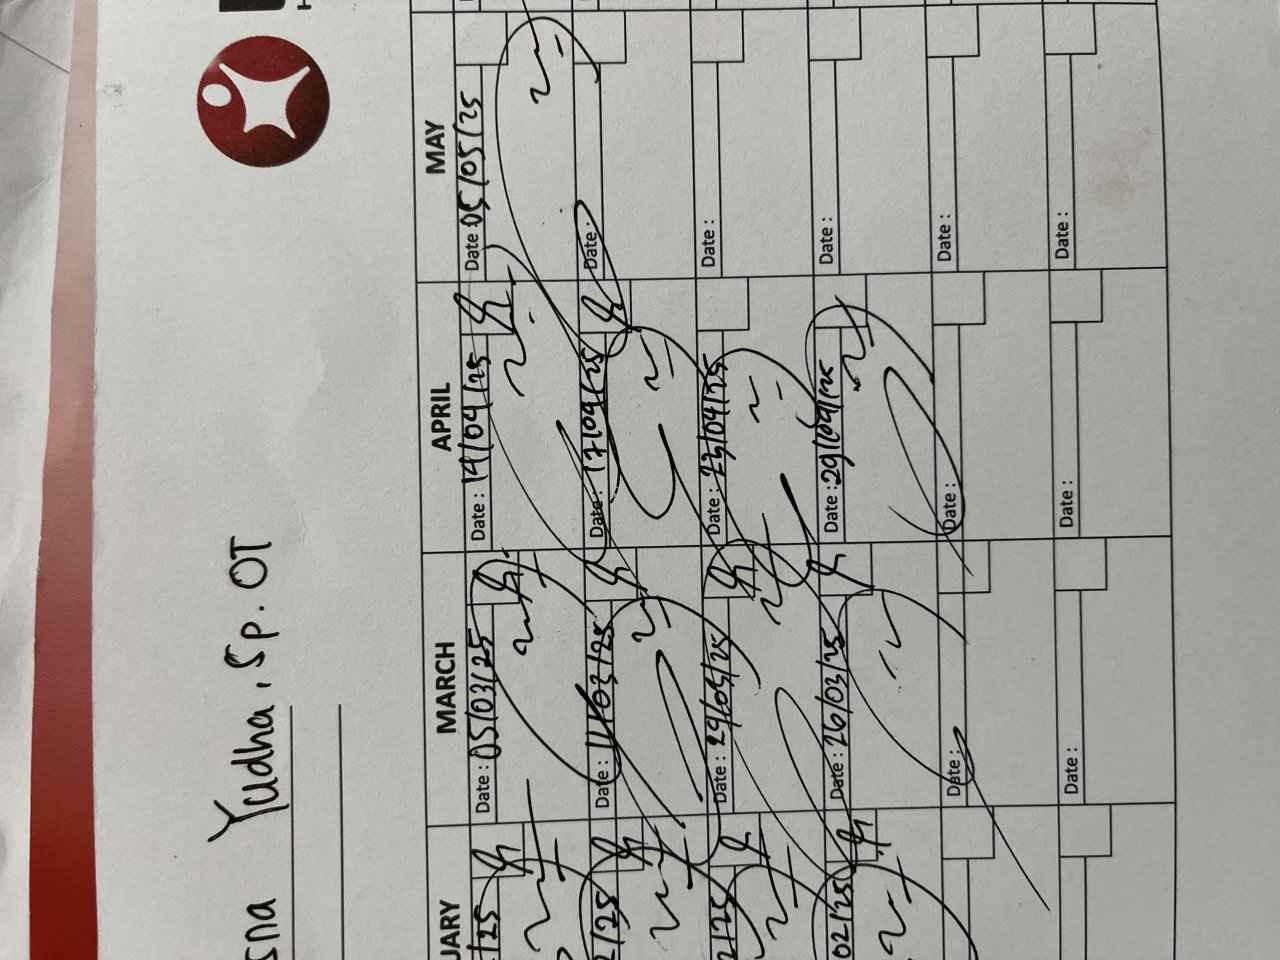 sna Yudha, Sp. OT
UARY MARCH APRIL MAY
/25 Date : 05/03/25 Date : 14/04/25 Date 05/05/25
2/25 Date : 11/03/25 Date : 17/04/25 Date :
2/25 Date : Date : 23/04/25 Date :
02/25 Date : 26/03/25 Date : 29/04/25 Date :
Date : Date : Date :
Date : Date : Date :